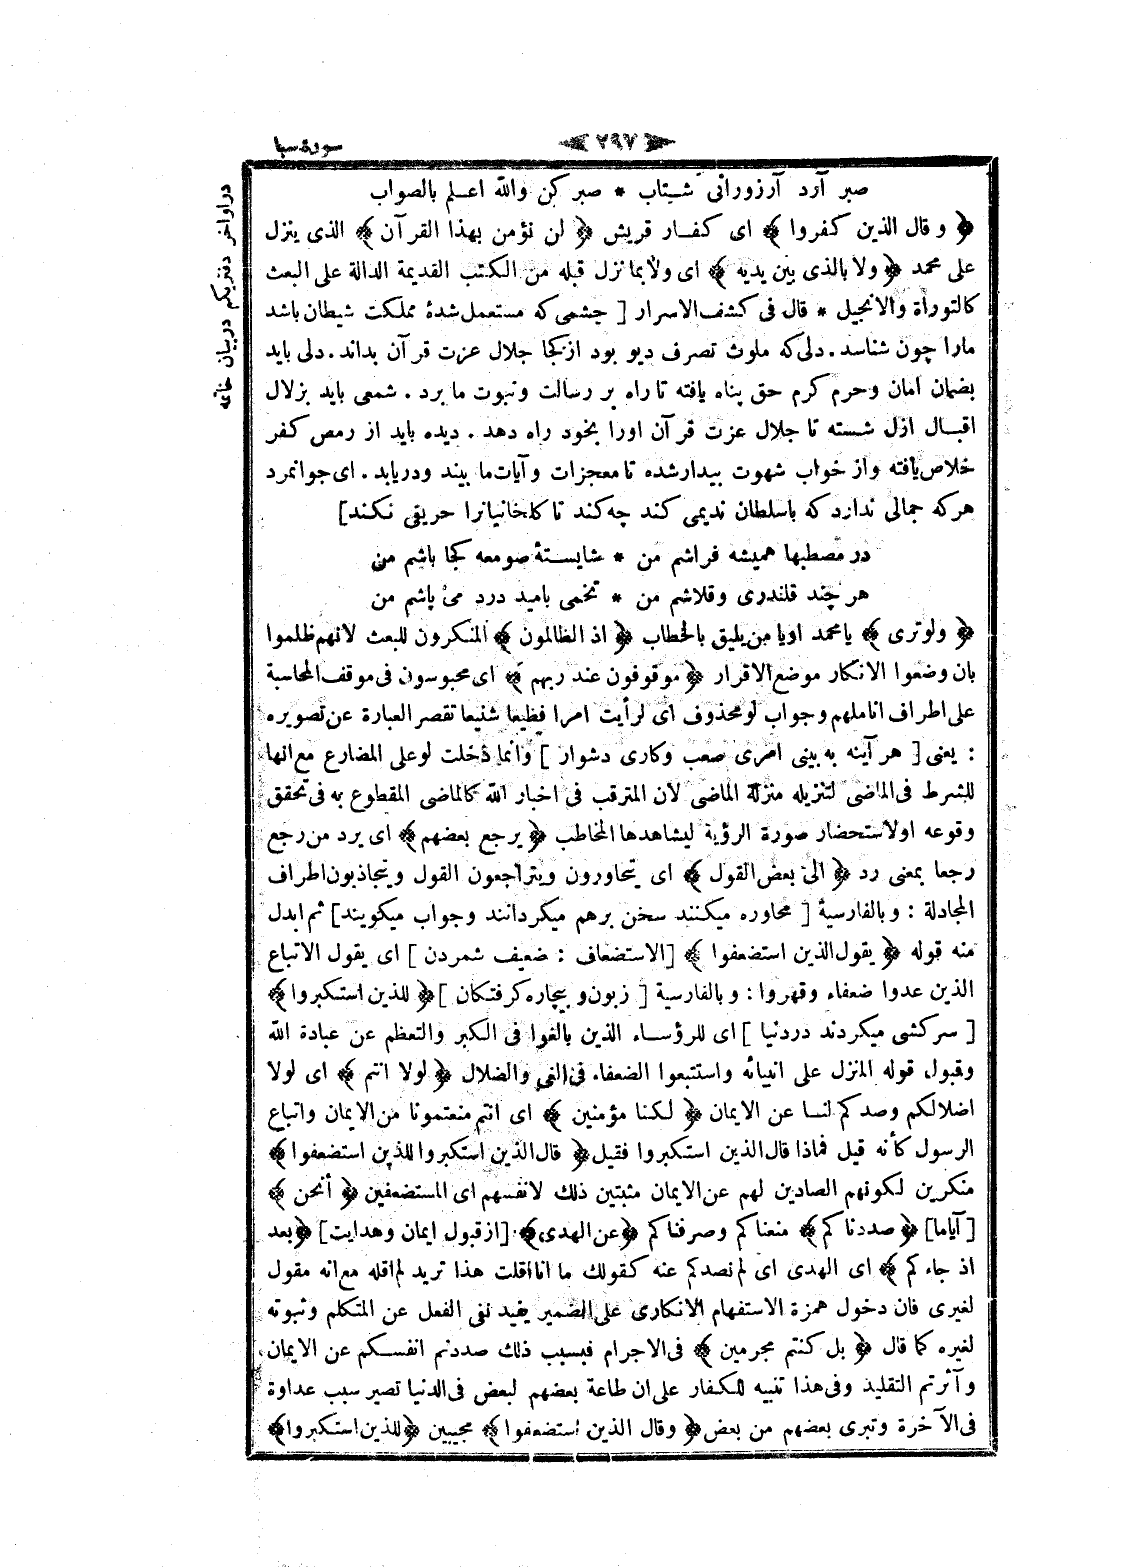 سورۀ سبا
﴿ ٢٩٧ ﴾
در اواخر دفتر یکم در بیان خاتمه
صبر آرد آرزورانی شتاب * صبر کن والله اعلم بالصواب
﴿ وقال الذین کفروا ﴾ ای کفار قریش ﴿ لن نؤمن بهذا القرآن ﴾ الذی ینزل
علی محمد ﴿ ولا بالذی بین یدیه ﴾ ای ولا بما نزل قبله من الکتب القدیمة الدالة علی البعث
کالتوراة والانجیل * قال فی کشف الاسرار [ چشمی که مستعمل شدۀ مملکت شیطان باشد
مارا چون شناسد . دلی که ملوث تصرف دیو بود از کجا جلال عزت قرآن بداند . دلی باید
بضمان امان وحرم کرم حق پناه یافته تا راه بر رسالت ونبوت ما برد . شمعی باید بزلال
اقبال ازل شسته تا جلال عزت قرآن اورا بخود راه دهد . دیده باید از رمص کفر
خلاص یافته واز خواب شهوت بیدار شده تا معجزات وآیات ما بیند ودریابد . ای جوانمرد
هرکه جمالی ندارد که باسلطان ندیمی کند چه کند تا کلخانیانرا حریفی نکند]
در مصطبها همیشه فراشم من * شایستۀ صومعه کجا باشم من
هر چند قلندری وقلاشم من * تخمی بامید درد می پاشم من
﴿ ولو تری ﴾ یا محمد او یا من یلیق بالخطاب ﴿ اذ الظالمون ﴾ المنکرون للبعث لانهم ظلموا
بان وضعوا الانکار موضع الاقرار ﴿ موقوفون عند ربهم ﴾ ای محبوسون فی موقف المحاسبة
علی اطراف اناملهم وجواب لو محذوف ای لرأیت امرا فظیعا شنیعا تقصر العبارة عن تصویره
: یعنی [ هر آینه به بینی امری صعب وکاری دشوار ] وانما دخلت لو علی المضارع مع انها
للشرط فی الماضی لتنزیله منزلة الماضی لان المترقب فی اخبار الله کالماضی المقطوع به فی تحقق
وقوعه او لاستحضار صورة الرؤیة لیشاهدها المخاطب ﴿ یرجع بعضهم ﴾ ای یرد من رجع
رجعا بمعنی رد ﴿ الی بعض القول ﴾ ای یتحاورون ویتراجعون القول ویتجاذبون اطراف
المجادلة : وبالفارسیة [ محاوره میکنند سخن برهم میکردانند وجواب میکویند] ثم ابدل
منه قوله ﴿ یقول الذین استضعفوا ﴾ [الاستضعاف : ضعیف شمردن ] ای یقول الاتباع
الذین عدوا ضعفاء وقهروا : وبالفارسیة [ زبون و بیچاره کرفتکان ] ﴿ للذین استکبروا ﴾
[ سرکشی میکردند دردنیا ] ای للرؤساء الذین بالغوا فی الکبر والتعظم عن عبادة الله
وقبول قوله المنزل علی انبیائه واستتبعوا الضعفاء فی الغی والضلال ﴿ لولا انتم ﴾ ای لولا
اضلالکم وصدکم لنا عن الایمان ﴿ لکنا مؤمنین ﴾ ای انتم منعتمونا من الایمان واتباع
الرسول کأنه قیل فماذا قال الذین استکبروا فقیل ﴿ قال الذین استکبروا للذین استضعفوا ﴾
منکرین لکونهم الصادین لهم عن الایمان مثبتین ذلك لانفسهم ای المستضعفین ﴿ أنحن ﴾
[آیاما] ﴿ صددناکم ﴾ منعناکم وصرفناکم ﴿ عن الهدی ﴾ [از قبول ایمان وهدایت] ﴿ بعد
اذ جاءکم ﴾ ای الهدی ای لم نصدکم عنه کقولك ما انا قلت هذا ترید لم اقله مع انه مقول
لغیری فان دخول همزة الاستفهام الانکاری علی الضمیر یفید نفی الفعل عن المتکلم وثبوته
لغیره کما قال ﴿ بل کنتم مجرمین ﴾ فی الاجرام فبسبب ذلك صددتم انفسکم عن الایمان
وآثرتم التقلید وفی هذا تنبیه للکفار علی ان طاعة بعضهم لبعض فی الدنیا تصیر سبب عداوة
فی الآخرة وتبری بعضهم من بعض ﴿ وقال الذین استضعفوا ﴾ مجیبین ﴿ للذین استکبروا ﴾